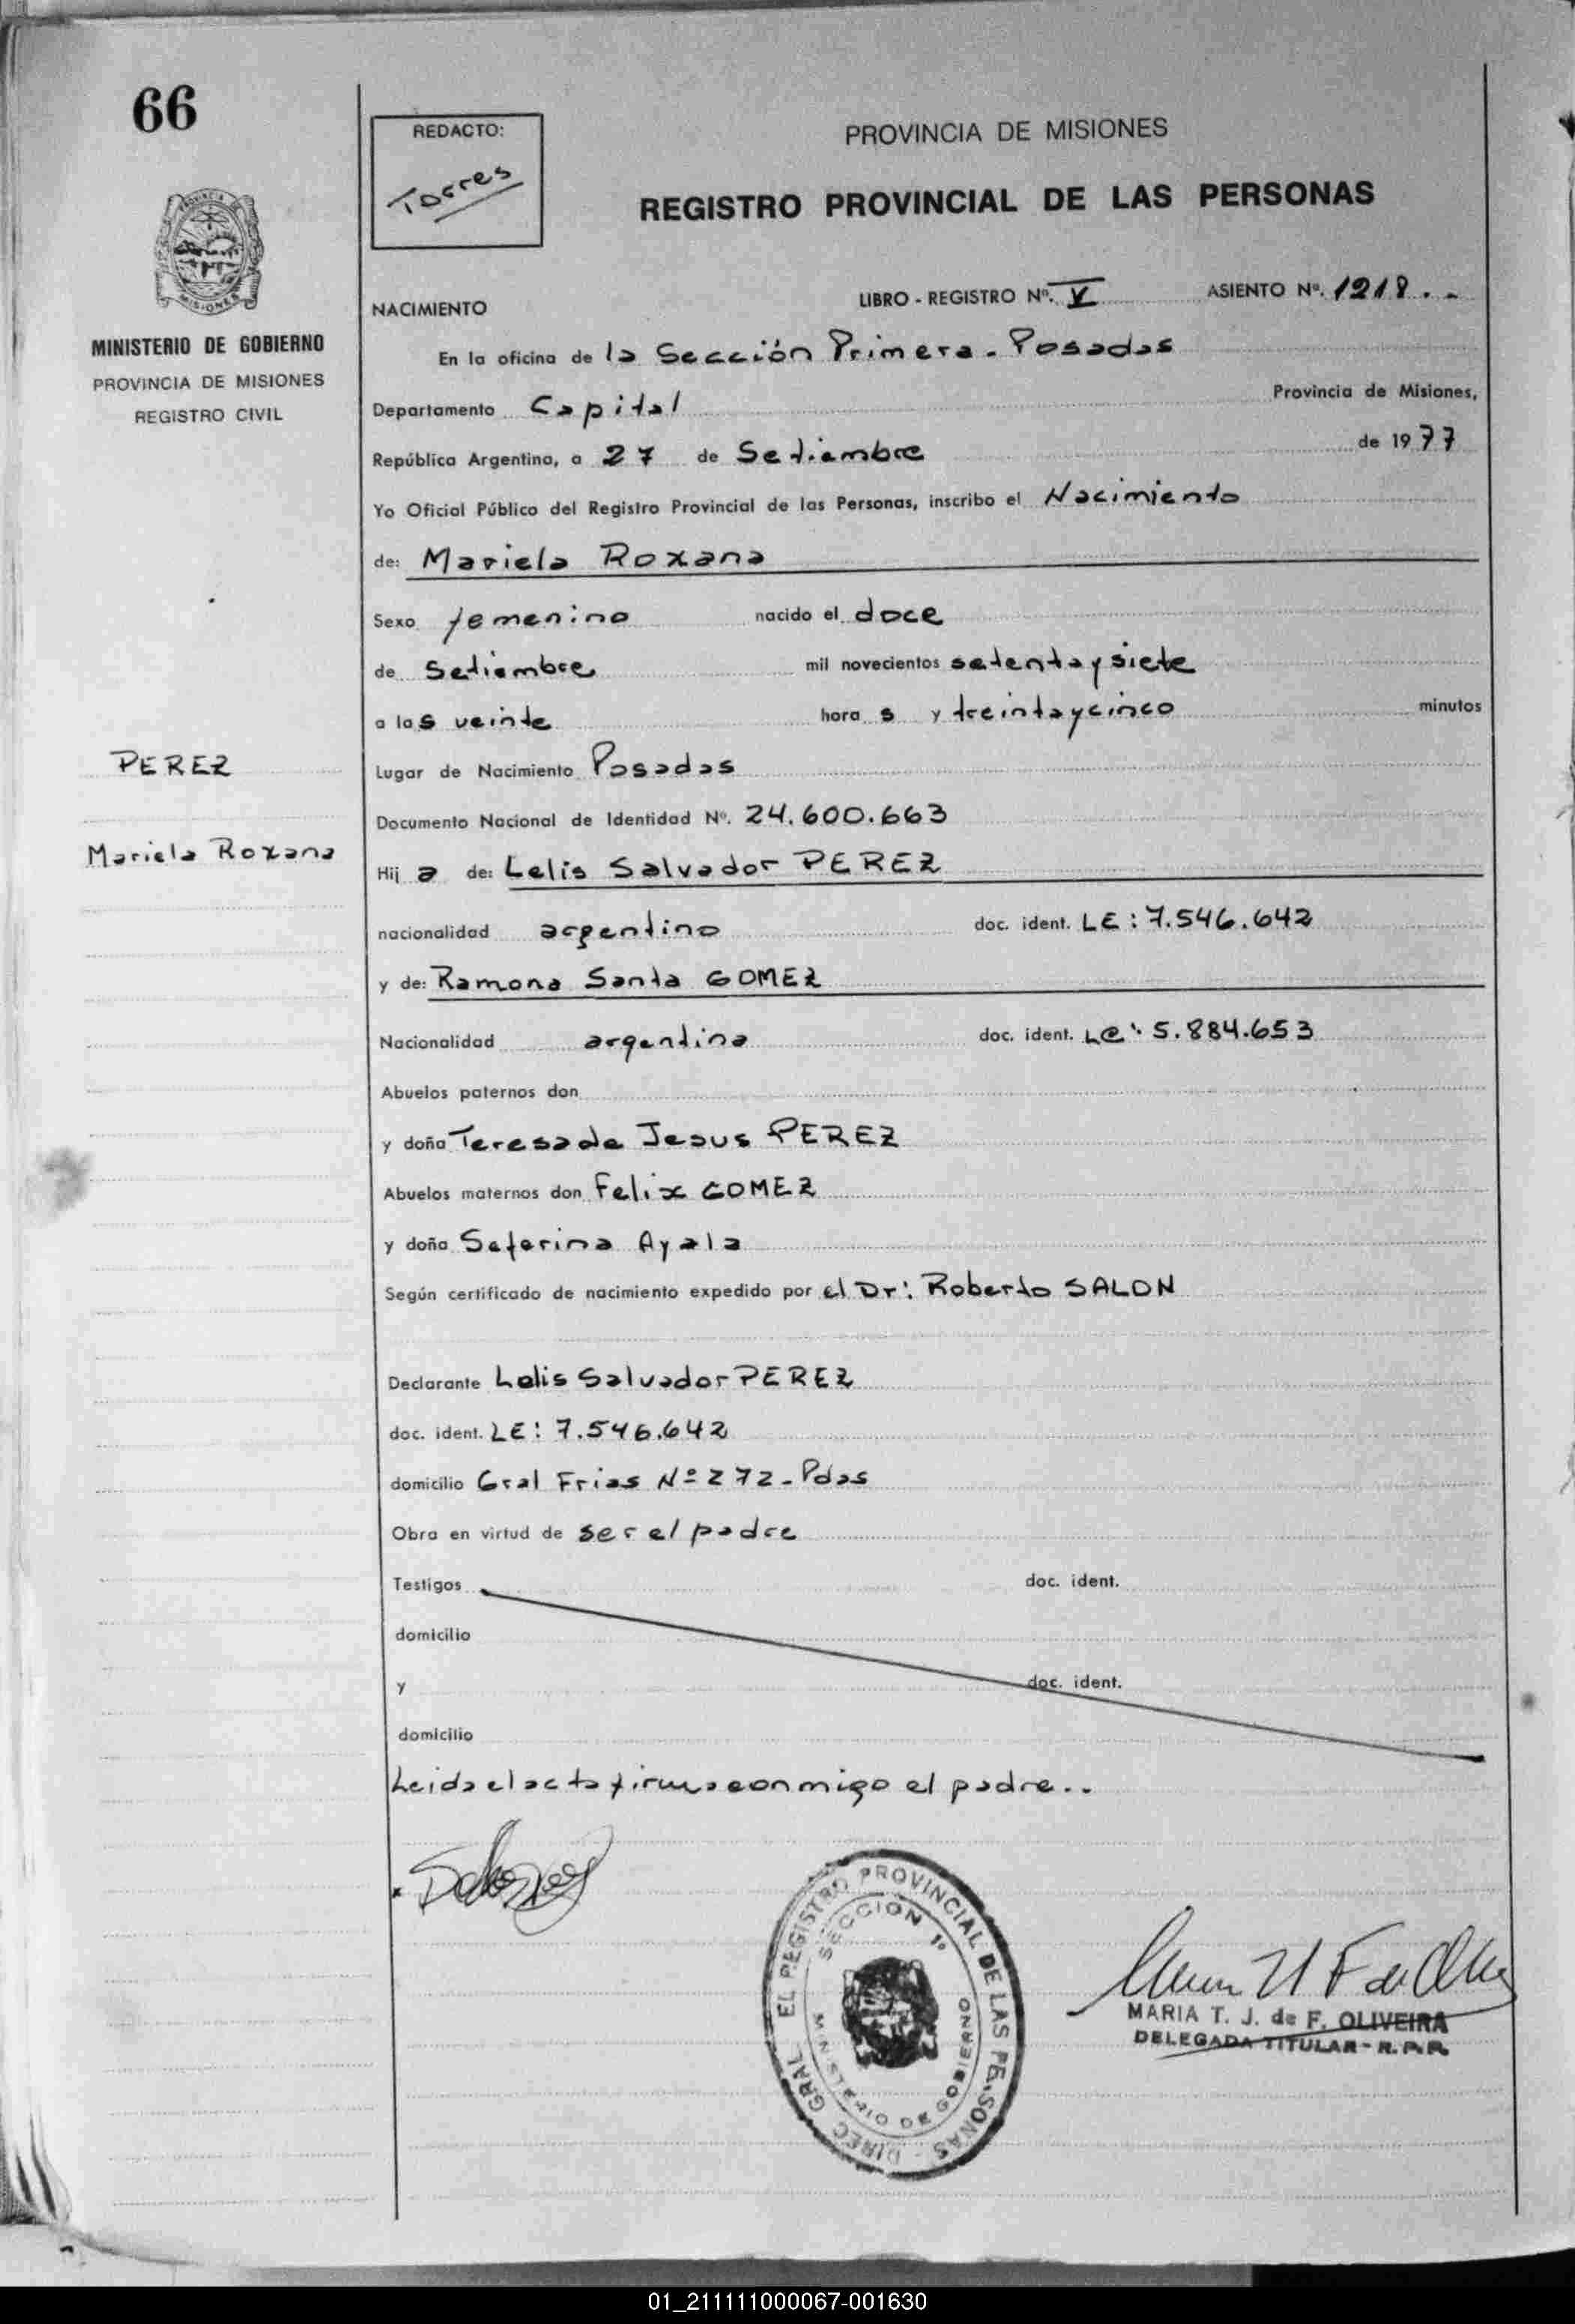 66
REDACTO:
Torres
PROVINCIA DE MISIONES
REGISTRO PROVINCIAL DE LAS PERSONAS
MISIONES
MINISTERIO DE GOBIERNO
PROVINCIA DE MISIONES
REGISTRO CIVIL
NACIMIENTO LIBRO - REGISTRO Nº. V ASIENTO Nº. 1218..-
En la oficina de la Sección Primera - Posadas
Departamento Capital Provincia de Misiones,
República Argentina, a 27 de Setiembre de 1977
Yo Oficial Público del Registro Provincial de las Personas, inscribo el Nacimiento
de: Mariela Roxana
Sexo femenino nacido el doce
de Setiembre mil novecientos setenta y siete
a las veinte hora s y treinta y cinco minutos
PEREZ
Mariela Roxana
Lugar de Nacimiento Posadas
Documento Nacional de Identidad Nº. 24.600.663
Hij a de: Lelis Salvador PEREZ
nacionalidad argentino doc. ident. LE: 7.546.642
y de: Ramona Santa GOMEZ
Nacionalidad argentina doc. ident. Lc: 5.884.653
Abuelos paternos don
y doña Teresa de Jesus PEREZ
Abuelos maternos don Felix GOMEZ
y doña Seferina Ayala
Según certificado de nacimiento expedido por el Dr: Roberto SALON
Declarante Lelis Salvador PEREZ
doc. ident. LE: 7.546.642
domicilio Gral Frias Nº 272 - Pdas
Obra en virtud de ser el padre
Testigos doc. ident.
domicilio
y doc. ident.
domicilio
Leida el acta firma conmigo el padre..
DIREC GRAL EL REGISTRO PROVINCIAL DE LAS PERSONAS
SECCION 1º
MINISTERIO DE GOBIERNO
MARIA T. J. de F. OLIVEIRA
DELEGADA TITULAR - R.P.P.
01_211111000067-001630